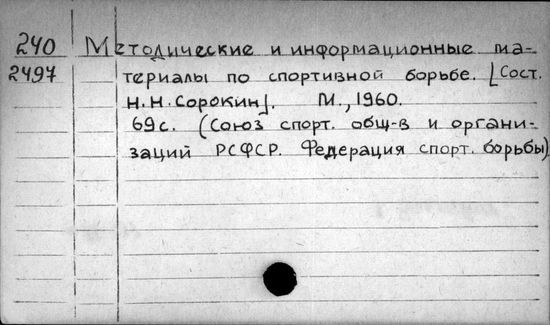 240 Методические и информационные ма-
2497 териалы по спортивной борьбе. [Сост.
Н.Н. Сорокин]. М., 1960.
69с. (Союз спорт. общ-в и органи-
заций РСФСР. Федерация спорт. борьбы)